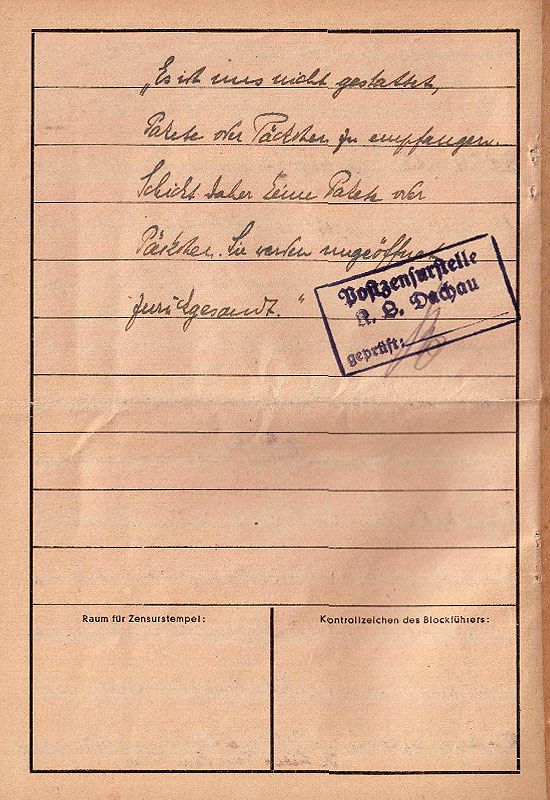 „Es ist uns nicht gestattet,
Pakete oder Päckchen zu empfangen.
Schickt daher keine Pakete oder
Päckchen. Sie werden ungeöffnet
zurückgesandt.“
Postzensurstelle
K. L. Dachau
geprüft:
Raum für Zensurstempel:
Kontrollzeichen des Blockführers: